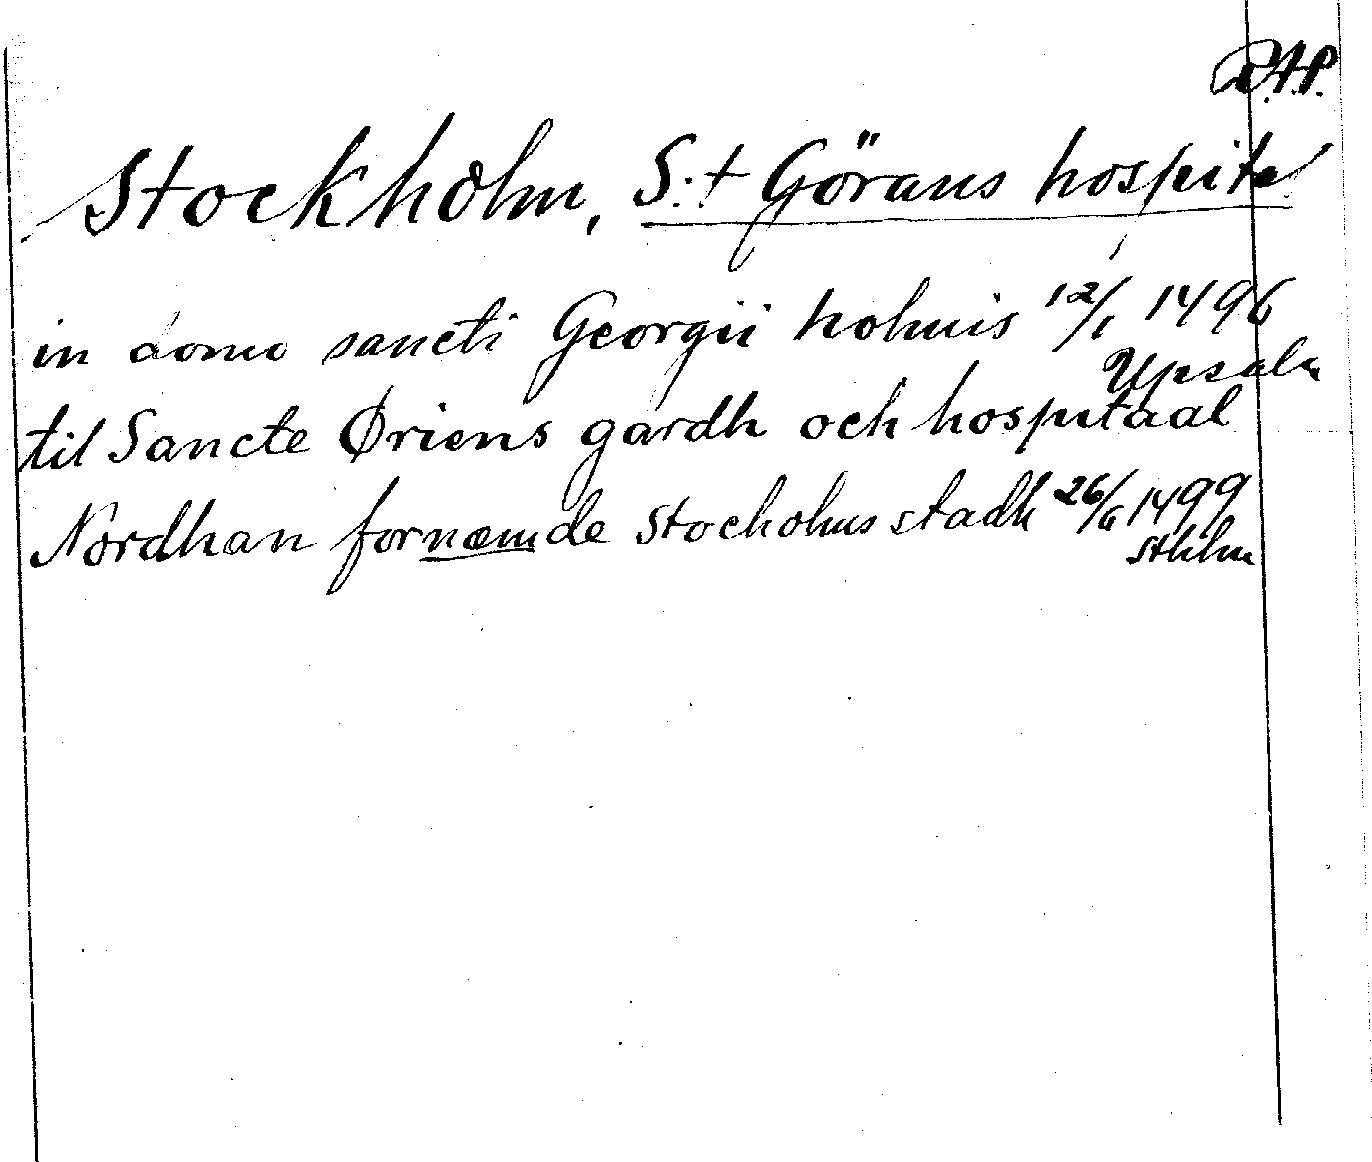 R.A.P.
Stockholm, S:t Görans hospital
in domo sancti Georgii holmis 12/1 1496
Upsala
til Sancte Øriens gardh och hospitaal
Nordhan fornæmde Stocholms stadh 26/6 1499
Sthlm